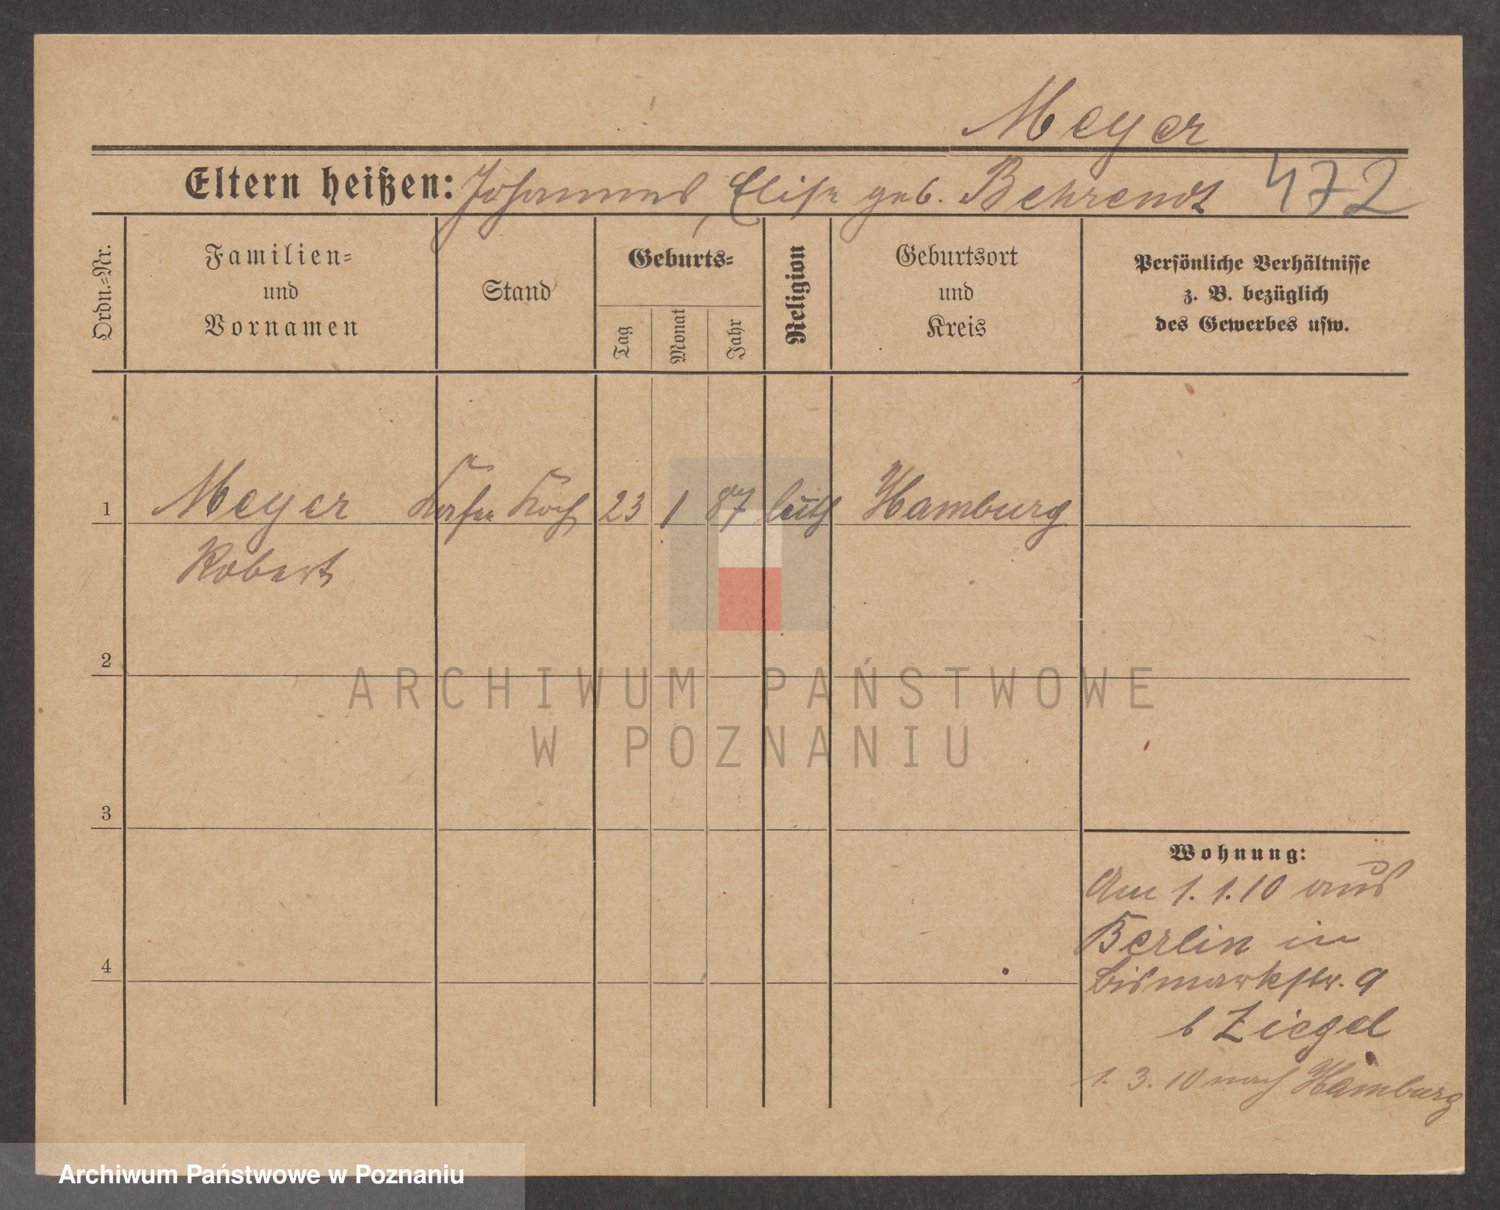 Meyer
Eltern heißen: Johannes, Elise geb. Behrendt 472
Ordn.=Nr.
Familien=
und
Vornamen
Stand
Geburts=
Tag
Monat
Jahr
Religion
Geburtsort
und
Kreis
Persönliche Verhältnisse
z. B. bezüglich
des Gewerbes usw.
1 Meyer Koch 23 1 87 luth Hamburg
Robert
2
ARCHIWUM PAŃSTWOWE
W POZNANIU
3
Wohnung:
Am 1. 1. 10 aus
Berlin in
4
Bismarkstr. 9
b Ziegel
1. 3. 10 nach Hamburg
Archiwum Państwowe w Poznaniu